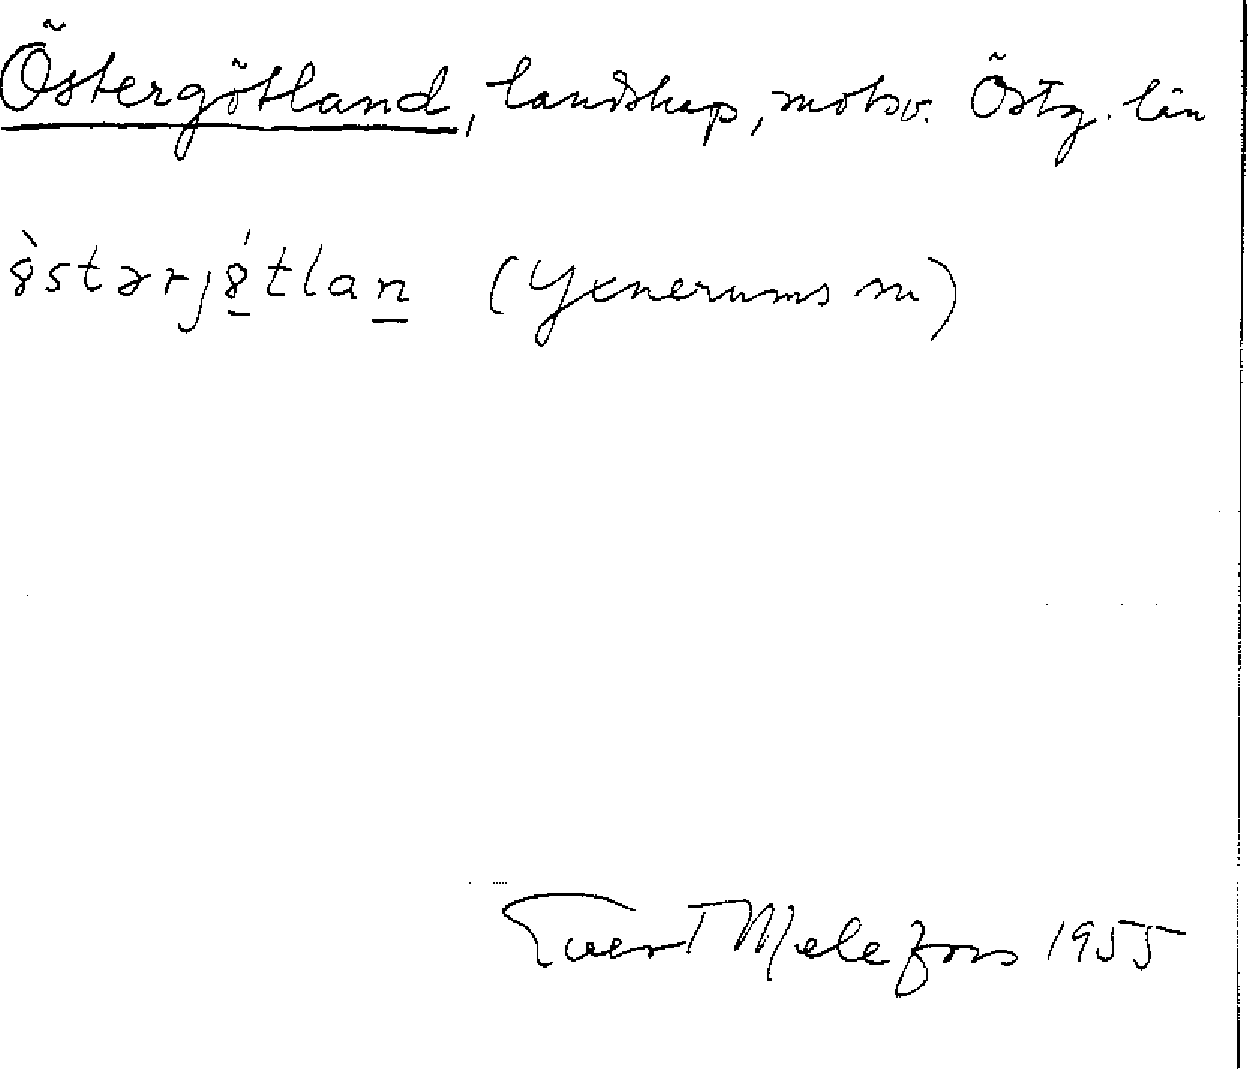 Östergötland, landskap, motsv. Östg. län
östərjötlan (Yxnerums sn)
Evert Melefors 1955